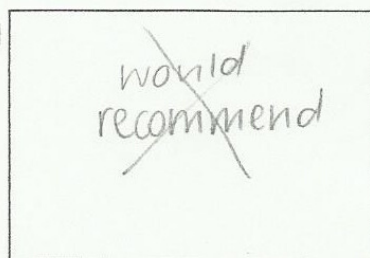 would
recommend